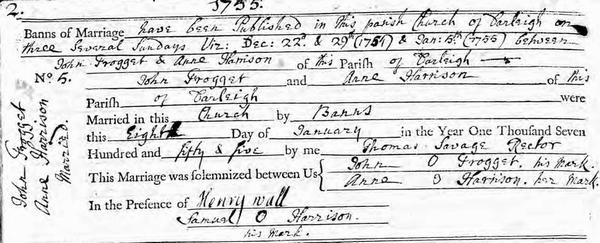 2. 1755.
Banns of Marriage have been Published in this parish Church of Earleigh on
three Several Sundays Viz: Dec: 22d & 29th (1754) & Jan: 5th (1755) between
John Frogget & Anne Harrison of this Parish of Earleigh
No 5. John Frogget and Anne Harrison of this
Parish of Earleigh were
Married in this Church by Banns
this Eighth Day of January in the Year One Thousand Seven
Hundred and fifty & five by me Thomas Savage Rector
This Marriage was solemnized between Us John O Frogget. his Mark.
Anne O Harrison. her Mark.
In the Presence of Henry Wall
Samuel O Harrison.
his Mark.
John Frogget
Anne Harrison
Married.